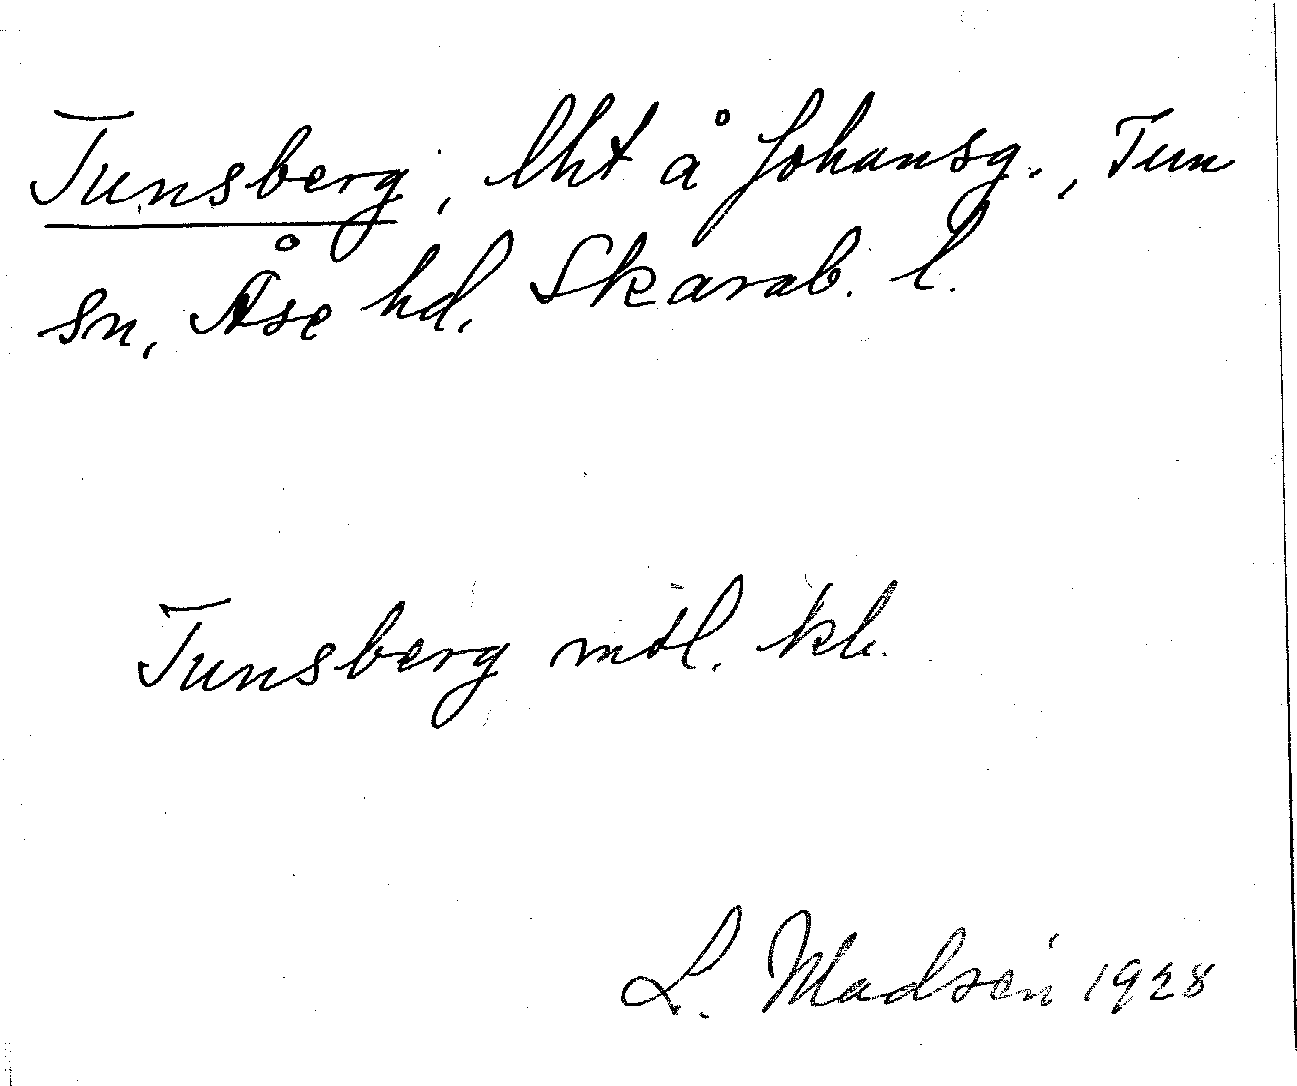 Tunsberg, lht å Johansg., Tun
sn, Åse hd. Skarab. l.
Tunsberg mtl. kb.
L. Madsén 1928